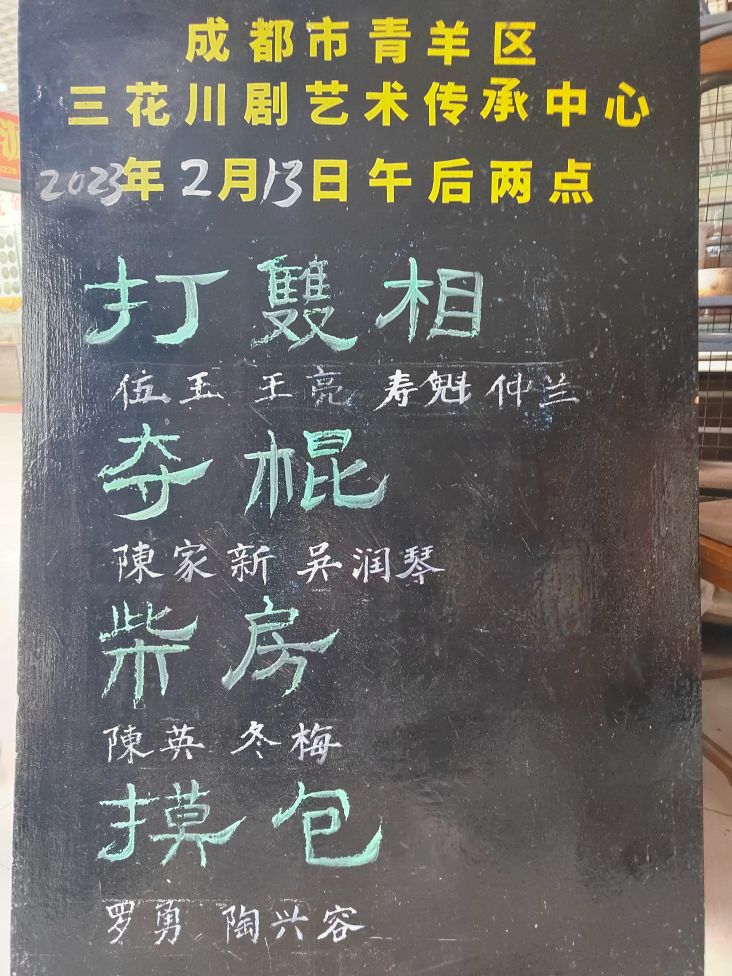 成都市青羊区
三花川剧艺术传承中心
2023年2月13日午后两点
打雙相
伍玉 王亮 寿魁 仲兰
夺棍
陳家新 吴润琴
柴房
陳英 冬梅
摸包
罗勇 陶兴容